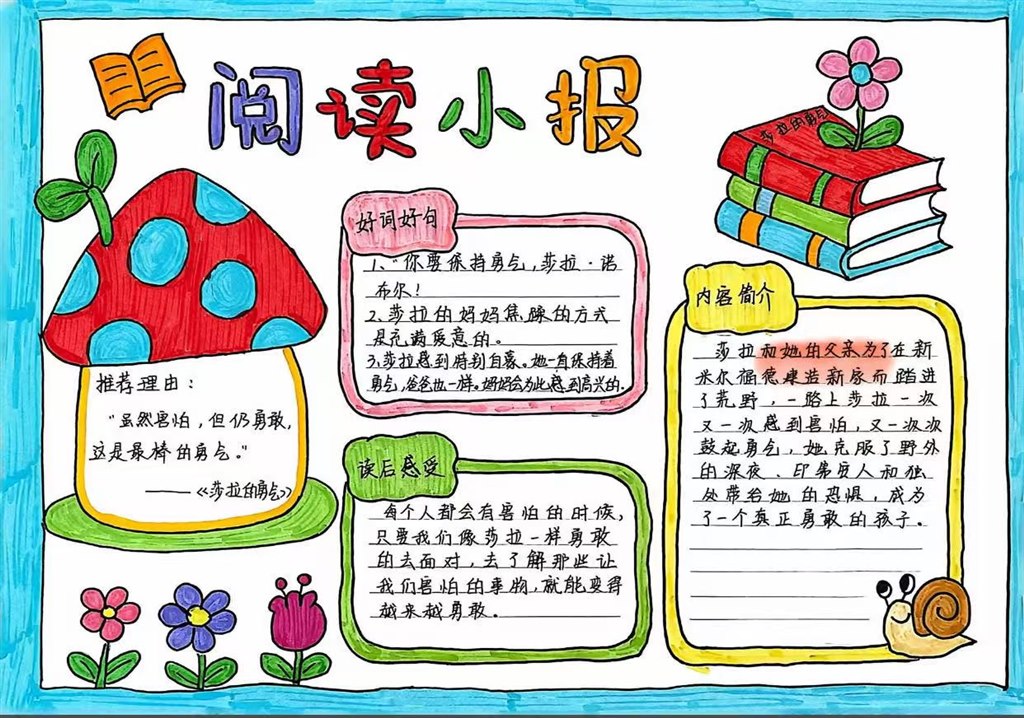 阅读小报
莎拉的勇气
推荐理由：
“虽然害怕，但仍勇敢，
这是最棒的勇气。”
——《莎拉的勇气》
好词好句
1、“你要保持勇气，莎拉·诺
布尔！
2、莎拉的妈妈焦躁的方式
是充满爱意的。
3、莎拉感到特别自豪。她一直保持着
勇气，爸爸也一样。妈妈会为此感到高兴的.
读后感受
每个人都会有害怕的时候，
只要我们像莎拉一样勇敢
的去面对，去了解那些让
我们害怕的事物，就能变得
越来越勇敢。
内容简介
莎拉和她的父亲为了在新
米尔福德建造新家而踏进
了荒野，一路上莎拉一次
又一次感到害怕，又一次次
鼓起勇气，她克服了野外
的深夜、印第安人和独
处带给她的恐惧，成为
了一个真正勇敢的孩子。